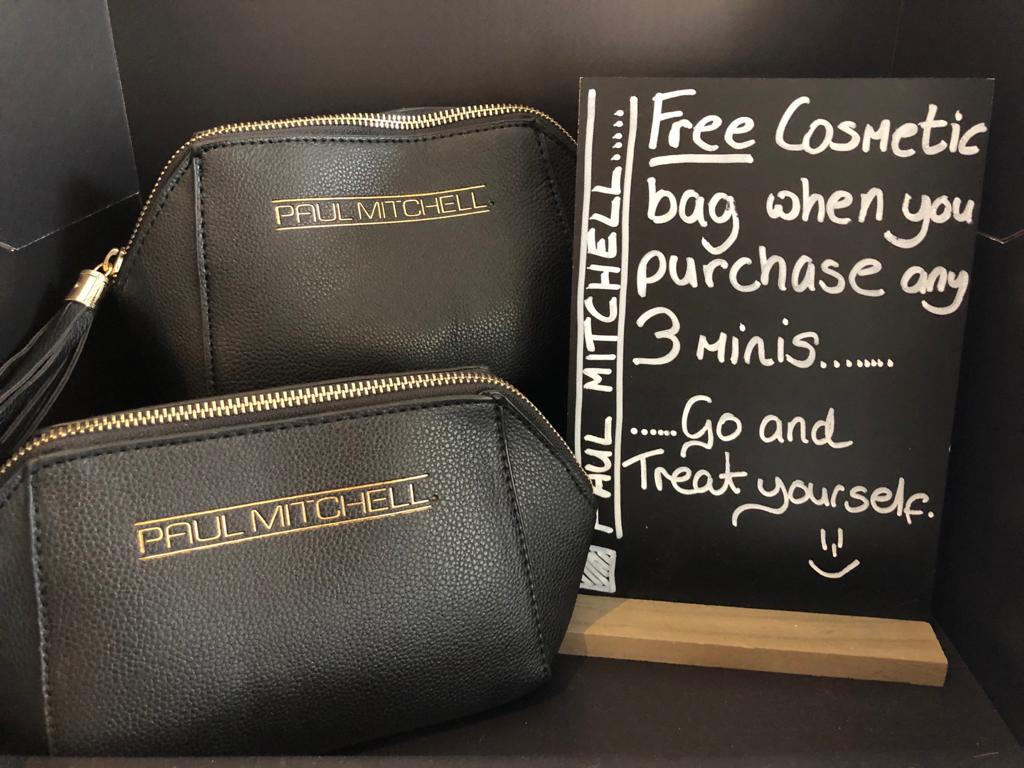 PAUL MITCHELL
PAUL MITCHELL
PAUL MITCHELL......
Free Cosmetic
bag when you
purchase any
3 Minis........
......Go and
Treat yourself.